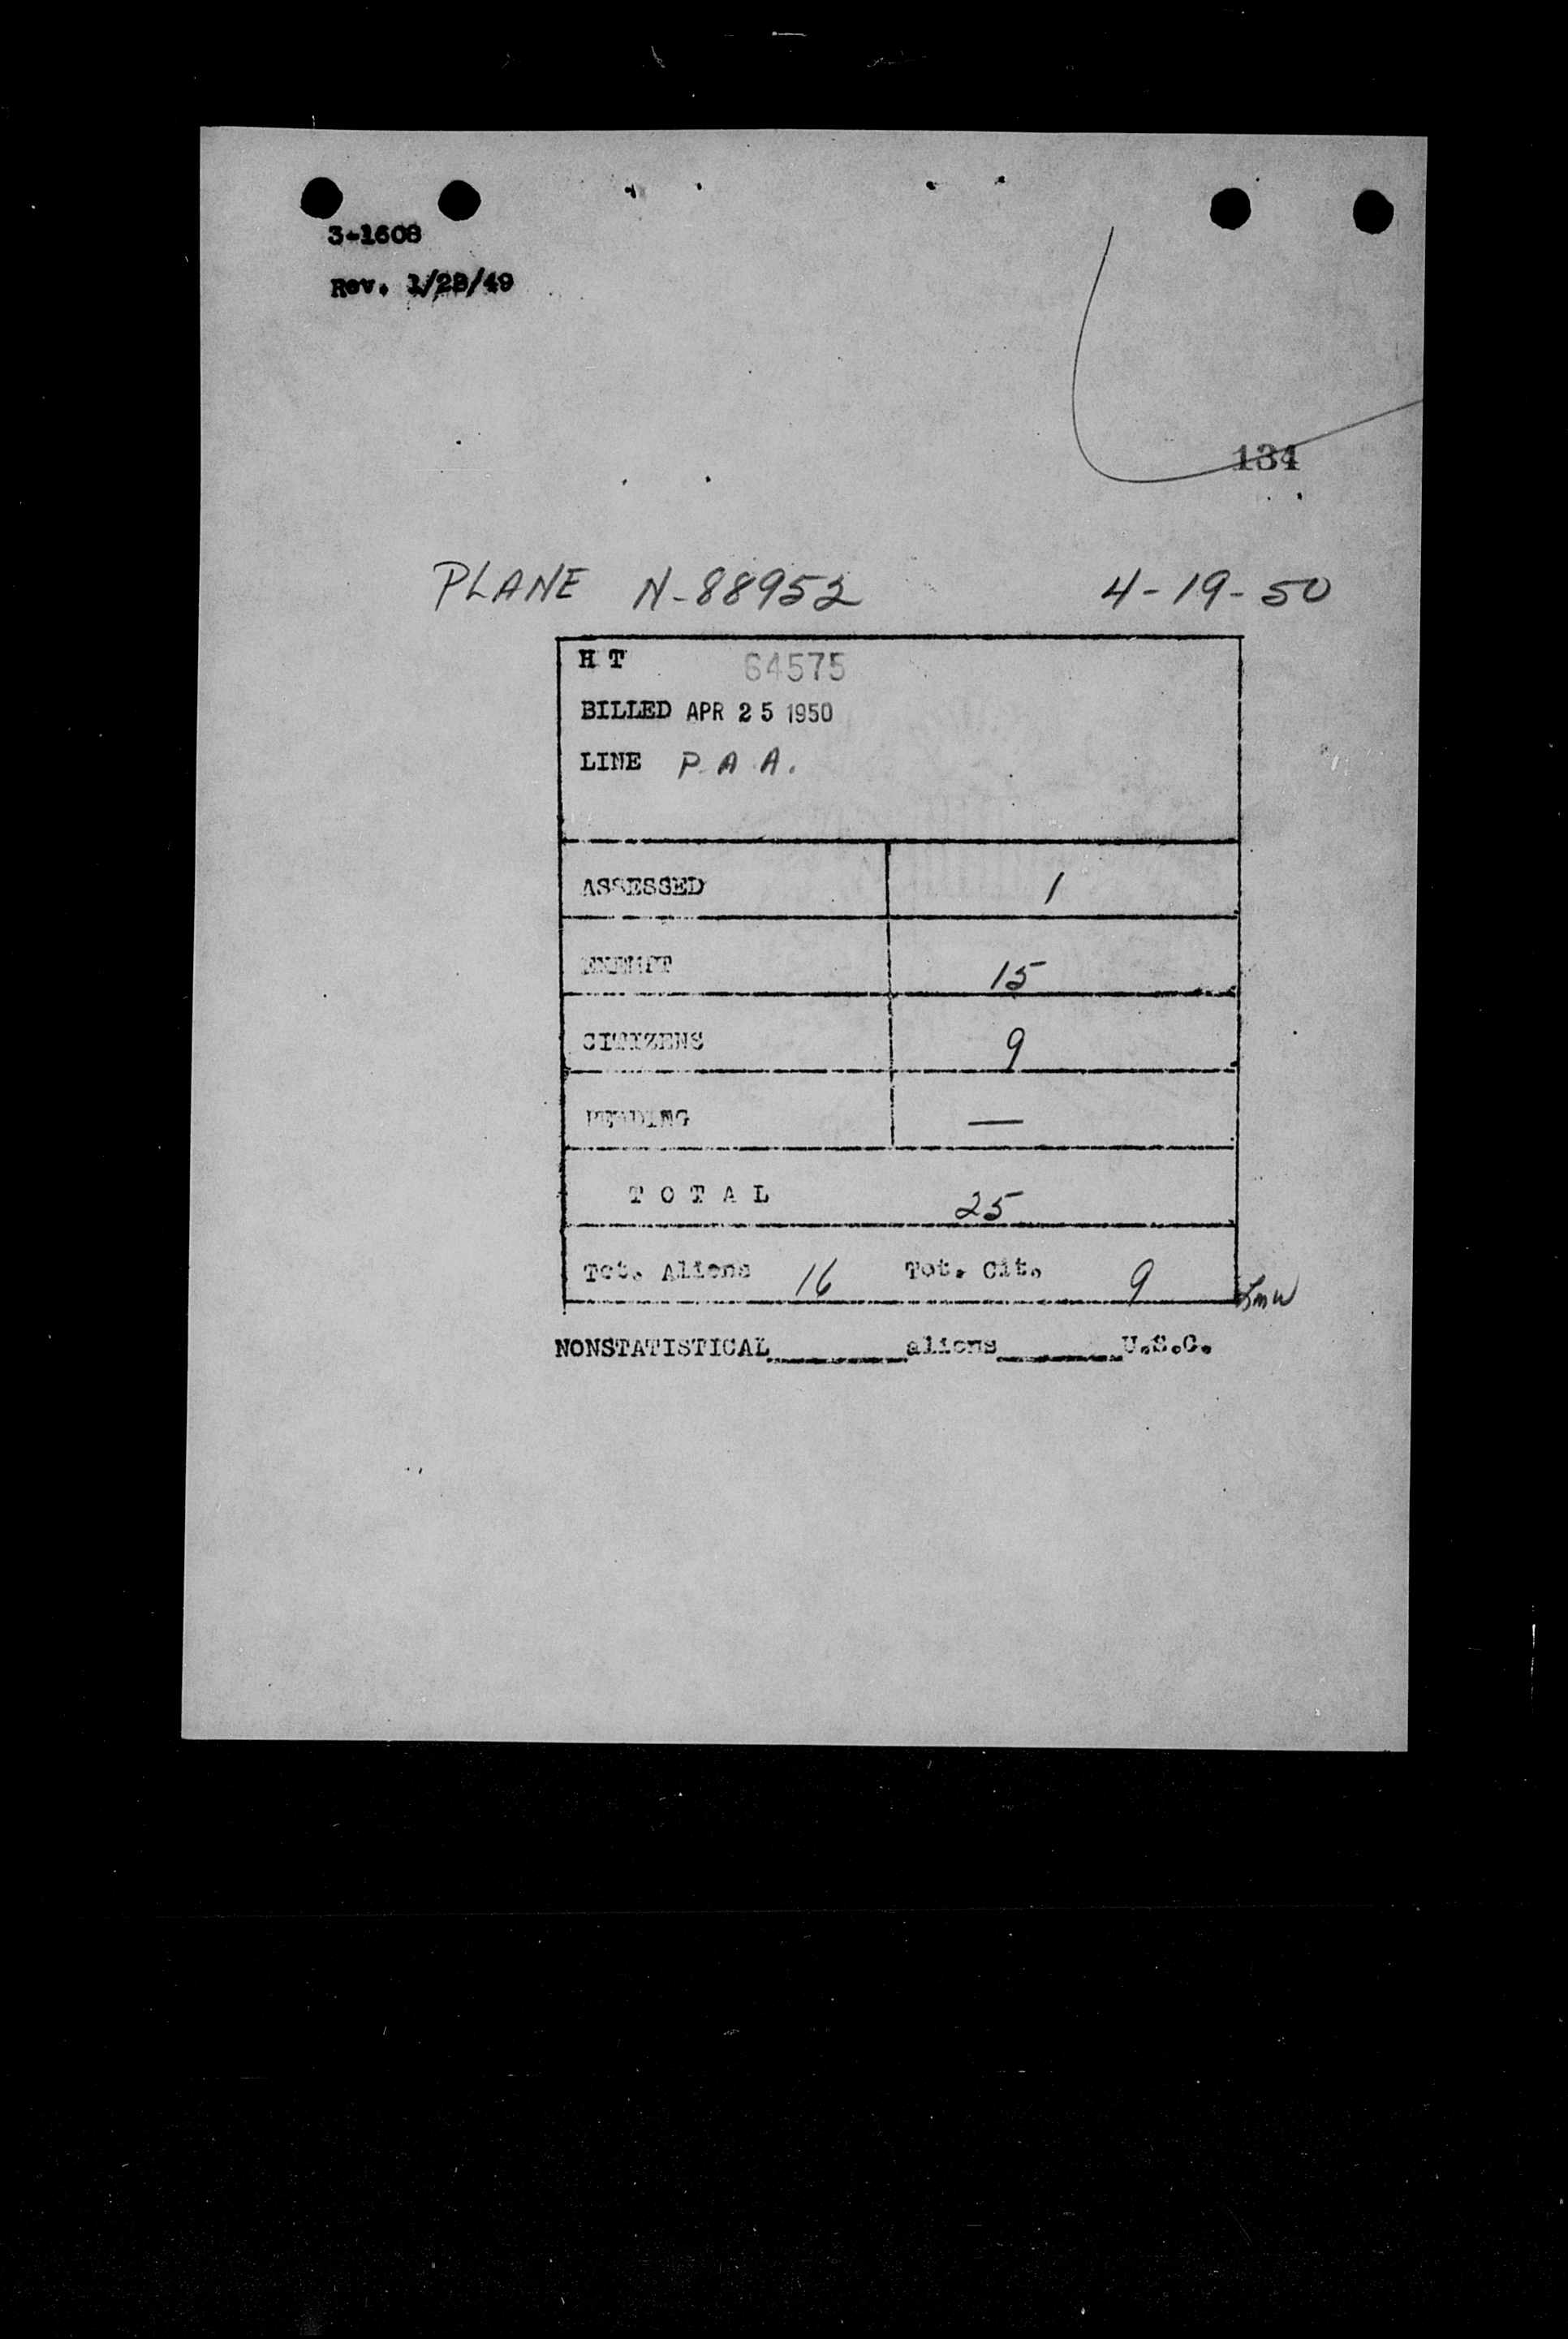 3-1608
Rev. 1/28/49
134
PLANE N-88952 4-19-50
H T 64575
BILLED APR 25 1950
LINE P.A.A.
ASSESSED 1
EXEMPT 15
CITIZENS 9
PENDING —
T O T A L 25
Tot. Aliens 16 Tot. Cit. 9
NONSTATISTICAL________aliens________U.S.C.